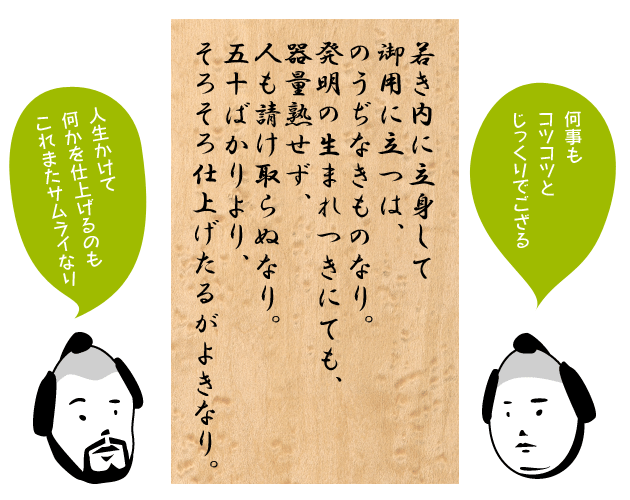 何事も
コツコツと
じっくりでござる
若き内に立身して
御用に立つは、
のうぢなきものなり。
発明の生まれつきにても、
器量熟せず、
人も請け取らぬなり。
五十ばかりより、
そろそろ仕上げたるがよきなり。
人生かけて
何かを仕上げるのも
これまたサムライなり